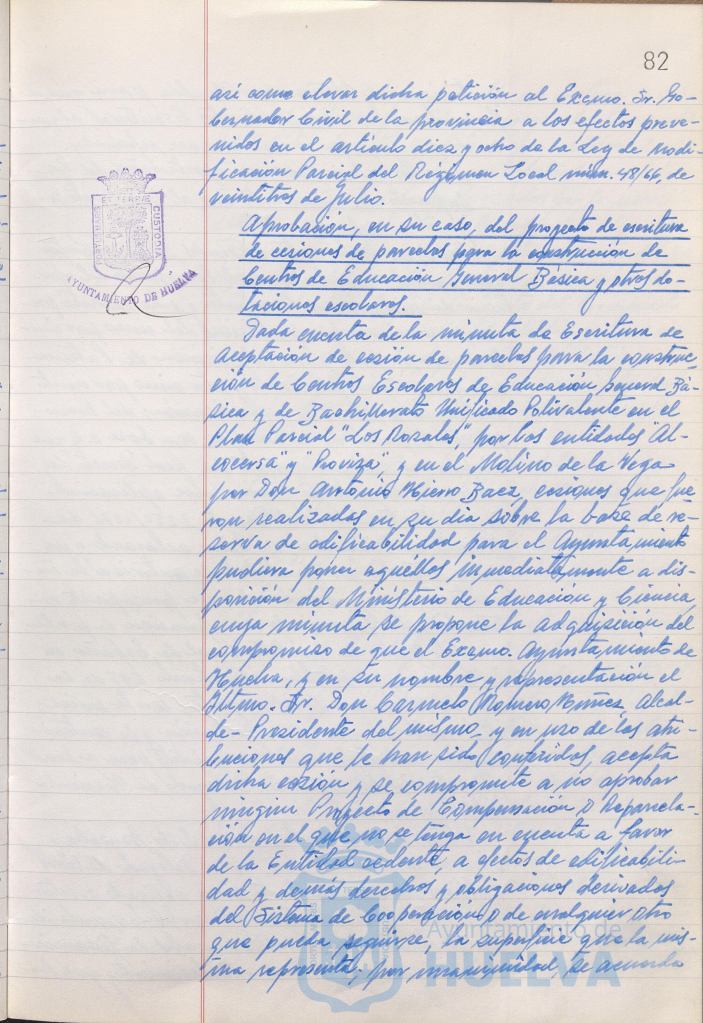 82
así como elevar dicha petición al Excmo. Sr. Go-
bernador Civil de la provincia a los efectos preve-
nidos en el artículo diez y ocho de la Ley de modi-
ficación Parcial del Régimen Local núm. 48/66, de
veintitres de Julio.
Aprobación, en su caso, del proyecto de escritura
de cesiones de parcelas para la construcción de
Centros de Educación General Básica y otros do-
taciones escolares.
Dada cuenta de la minuta de Escritura de
aceptación de cesión de parcelas para la construc-
ción de Centros Escolares de Educación General Bá-
sica y de Bachillerato Unificado Polivalente en el
Plan Parcial "Los Rosales", por las entidades "Al-
cocersa" y "Proviza", y en el Molino de la Vega
por Don Antonio Hierro Baez, cesiones que fue-
ron realizadas en su día sobre la base de re-
serva de edificabilidad para el Ayuntamiento
pudiera poner aquellos inmediatamente a dis-
posición del Ministerio de Educación y Ciencia,
cuya minuta se propone la adquisición del
compromiso de que el Excmo. Ayuntamiento de
Huelva, y en su nombre y representación el
Iltmo. Sr. Don Carmelo Romero Núñez, Alcal-
de-Presidente del mismo, y en uso de las atri-
buciones que le han sido conferidas, acepta
dicha cesión y se compromete a no aprobar
ningún Proyecto de Compensación o Reparcela-
ción en el que no se tenga en cuenta a favor
de la Entidad cedente, a efectos de edificabili-
dad y demás derechos y obligaciones derivados
del Sistema de Cooperación o de cualquier otro
que pueda seguirse, la superficie que la mis-
ma representa; por unanimidad se acuerda
PORTUS MARIS ET TERRAE CUSTODIA
AYUNTAMIENTO DE HUELVA
Ayuntamiento de
HUELVA